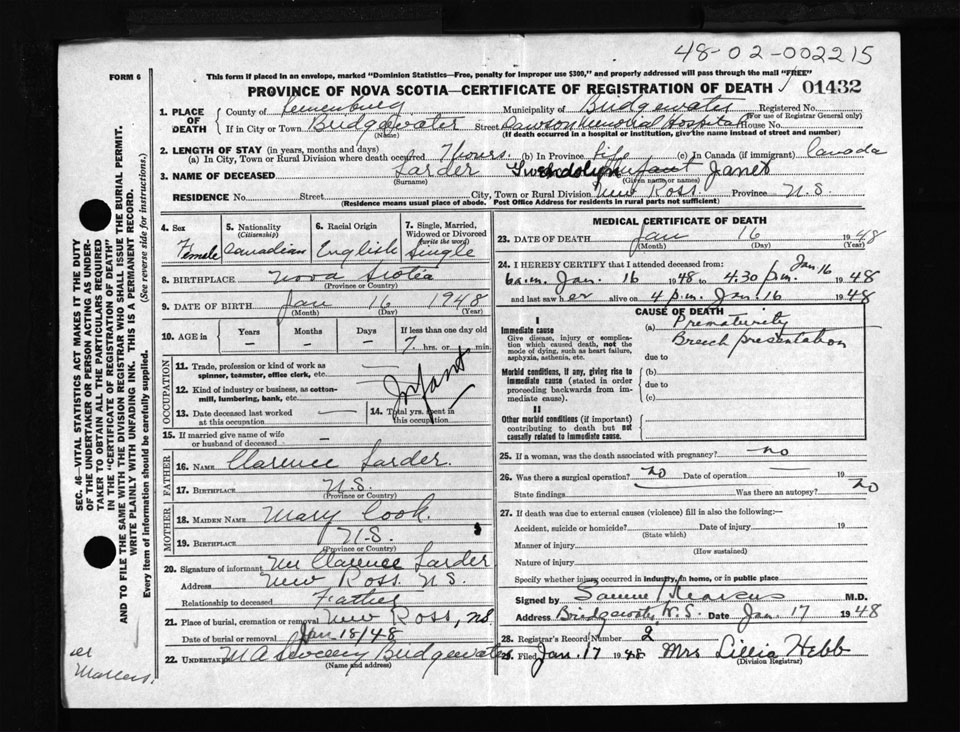 48-02-002215
FORM 6
This form if placed in an envelope, marked "Dominion Statistics—Free, penalty for improper use $300," and properly addressed will pass through the mail "FREE"
PROVINCE OF NOVA SCOTIA—CERTIFICATE OF REGISTRATION OF DEATH
01432
1. PLACE OF DEATH
County of Lunenburg Municipality of Bridgewater Registered No.
(For use of Registrar General only)
If in City or Town Bridgewater Street Dawson Memorial Hospital House No.
(Name) (If death occurred in a hospital or institution, give the name instead of street and number)
2. LENGTH OF STAY (in years, months and days)
(a) In City, Town or Rural Division where death occurred 7 hours. (b) In Province Life (c) In Canada (if immigrant) Canada
3. NAME OF DECEASED Larder Gwendolyn Infant Janet
(Surname) (Given name or names)
RESIDENCE No. Street City, Town or Rural Division New Ross Province N.S.
(Residence means usual place of abode. Post Office Address for residents in rural parts not sufficient)
4. Sex Female
5. Nationality (Citizenship) Canadian
6. Racial Origin English
7. Single, Married, Widowed or Divorced (write the word) Single
8. BIRTHPLACE Nova Scotia
(Province or Country)
9. DATE OF BIRTH Jan 16 1948
(Month) (Day) (Year)
10. AGE in Years — Months — Days — If less than one day old 7 hrs. or min.
OCCUPATION
11. Trade, profession or kind of work as spinner, teamster, office clerk, etc. —
12. Kind of industry or business, as cotton-mill, lumbering, bank, etc. —
Infant
13. Date deceased last worked at this occupation —
14. Total yrs. spent in this occupation
15. If married give name of wife or husband of deceased —
FATHER
16. NAME Clarence Larder.
17. BIRTHPLACE N.S.
(Province or Country)
MOTHER
18. MAIDEN NAME Mary Cook.
19. BIRTHPLACE N.S.
(Province or Country)
20. Signature of informant Mr Clarence Larder
Address New Ross N.S.
Relationship to deceased Father
21. Place of burial, cremation or removal New Ross, N.S.
Date of burial or removal Jan 18/48
22. UNDERTAKER Bridgewater
(Name and address)
MEDICAL CERTIFICATE OF DEATH
23. DATE OF DEATH Jan 16 1948
(Month) (Day) (Year)
24. I HEREBY CERTIFY that I attended deceased from:
6 a.m. Jan. 16 1948 to 4.30 p.m. Jan 16 1948
and last saw her alive on 4 p.m. Jan. 16 1948
CAUSE OF DEATH
I
Immediate cause
Give disease, injury or complication which caused death, not the mode of dying, such as heart failure, asphyxia, asthenia, etc.
(a) Prematurity
Breech presentation
due to
Morbid conditions, if any, giving rise to immediate cause (stated in order proceeding backwards from immediate cause).
(b)
due to
(c)
II
Other morbid conditions (if important) contributing to death but not causally related to immediate cause.
25. If a woman, was the death associated with pregnancy? no
26. Was there a surgical operation? no Date of operation — 19
State findings Was there an autopsy? no
27. If death was due to external causes (violence) fill in also the following:—
Accident, suicide or homicide? Date of injury 19
(State which)
Manner of injury
(How sustained)
Nature of injury
Specify whether injury occurred in industry, in home, or in public place
Signed by M.D.
Address Bridgewater, N.S. Date Jan. 17 1948
28. Registrar's Record Number 2
29. Filed Jan. 17 1948 Mrs Lillia Hebb
(Division Registrar)
SEC. 46—VITAL STATISTICS ACT MAKES IT THE DUTY
OF THE UNDERTAKER OR PERSON ACTING AS UNDERTAKER TO OBTAIN ALL THE PARTICULARS REQUIRED
IN THE "CERTIFICATE OF REGISTRATION OF DEATH"
AND TO FILE THE SAME WITH THE DIVISION REGISTRAR WHO SHALL ISSUE THE BURIAL PERMIT.
WRITE PLAINLY WITH UNFADING INK. THIS IS A PERMANENT RECORD.
Every item of information should be carefully supplied. (See reverse side for instructions.)